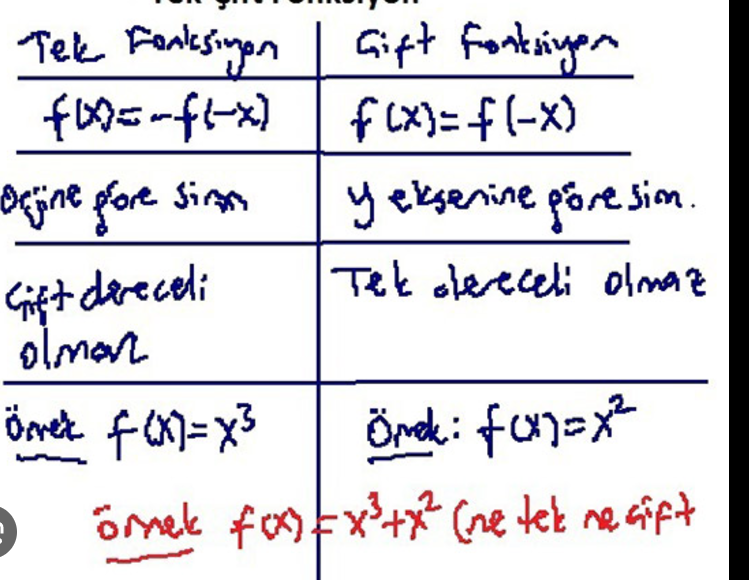 Tek Fonksiyon
Çift Fonksiyon
f(x)=-f(-x)
f(x)=f(-x)
Orjine göre sim
y eksenine göre sim.
Çift dereceli
olmaz
Tek dereceli olmaz
Örnek f(x)=x³
Örnek: f(x)=x²
örnek f(x)=x³+x² (ne tek ne çift